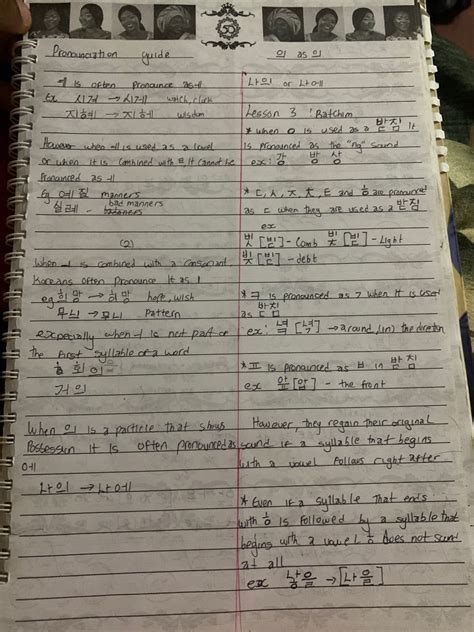 50
Pronounciation guide
ㅖ is often pronounce as ㅔ
Ex 시계 → 시게 watch, clock
지혜 → 지헤 wisdom
However when ㅖ is used as a vowel
or when it is combined with ㄹ, it cannot be
Pronounced as ㅔ
Eg 예절 manners
실례 - bad manners
(2)
When ㅢ is combined with a consonant,
Koreans often pronounce it as ㅣ
eg 희망 → 히망 hope, wish
무늬 → 무니 Pattern
especially when ㅢ is not part of
the first syllable of a word
회의
거의
When 의 is a particle that shows
Possession it is often pronounced as
에
나의 → 나에
의 as 의
나의 or 나에
Lesson 3 : Batchim
* when ㅇ is used as a 받침 it
is pronounced as the "ng" sound
ex: 강 방 상
* ㄷ, ㅅ, ㅈ, ㅊ, ㅌ and ㅎ are pronounced
as ㄷ when they are used as a 받침
ex
빗 [빋] - Comb 빛 [빋] - Light
빚 [빋] - debt
* ㅋ is pronounced as ㄱ when it is used
as 받침
ex: 녘 [녁] → around, (in) the direction
* ㅍ is pronounced as ㅂ in 받침
ex 앞 [압] - the front
However, they regain their original
sound if a syllable that begins
with a vowel follows right after
* Even if a syllable that ends
with ㅎ is followed by a syllable that
begins with a vowel ㅎ does not sound
at all
ex 낳을 → [나을]